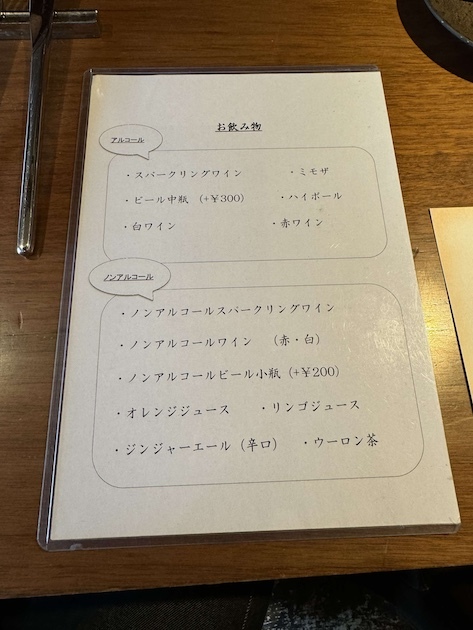 お飲み物
アルコール
・スパークリングワイン ・ミモザ
・ビール中瓶 (+¥300) ・ハイボール
・白ワイン ・赤ワイン
ノンアルコール
・ノンアルコールスパークリングワイン
・ノンアルコールワイン (赤・白)
・ノンアルコールビール小瓶 (+¥200)
・オレンジジュース ・リンゴジュース
・ジンジャーエール (辛口) ・ウーロン茶